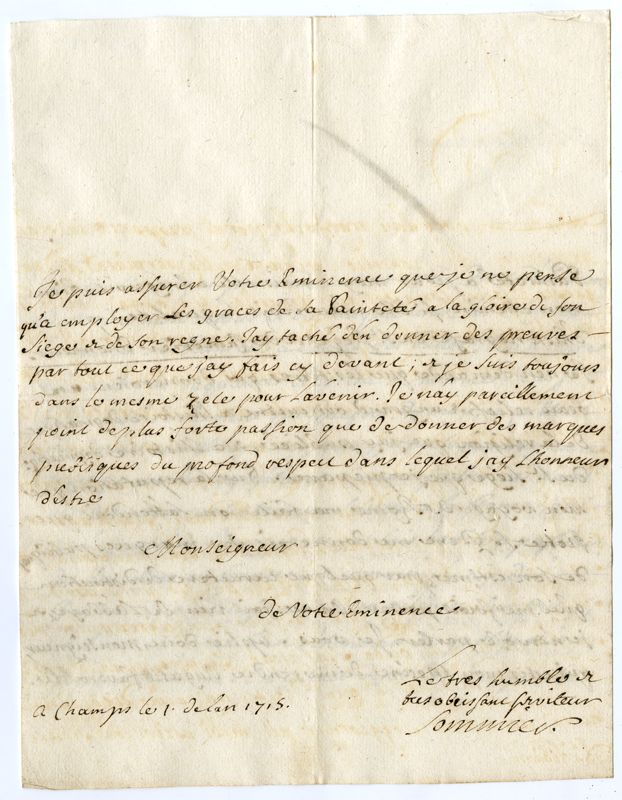 Je puis assurer Votre Eminence que je ne pense
qu'a employer les graces de sa Sainteté a la gloire de son
Siege & de son regne. Jay taché d'en donner des preuves
par tout ce que j'ay fais cy devant; & je suis toujours
dans le mesme zele pour l'avenir. Je n'ay pareillement
point de plus forte passion que de donner des marques
publiques du profond respect dans lequel j'ay l'honneur
d'estre
Monseigneur
de Votre Eminence
Le tres humble &
tres obeissant serviteur
Sommier.
A Champs le 1. de l'an 1715.